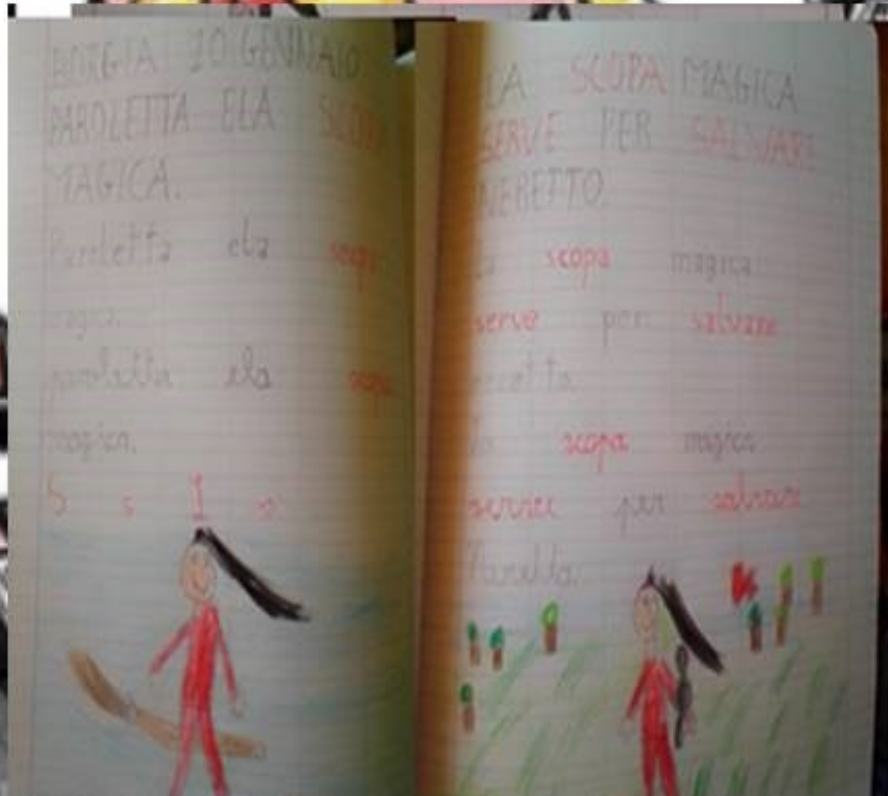 BORGIA 10 GENNAIO
PAROLETTA ELA SCOPA
MAGICA.
Paroletta ela scopa
magica.
paroletta ela scopa
magica.
S s S s
LA SCOPA MAGICA
SERVE PER SALVARE
NERETTO.
La scopa magica
serve per salvare
la scopa magica
serve per salvare